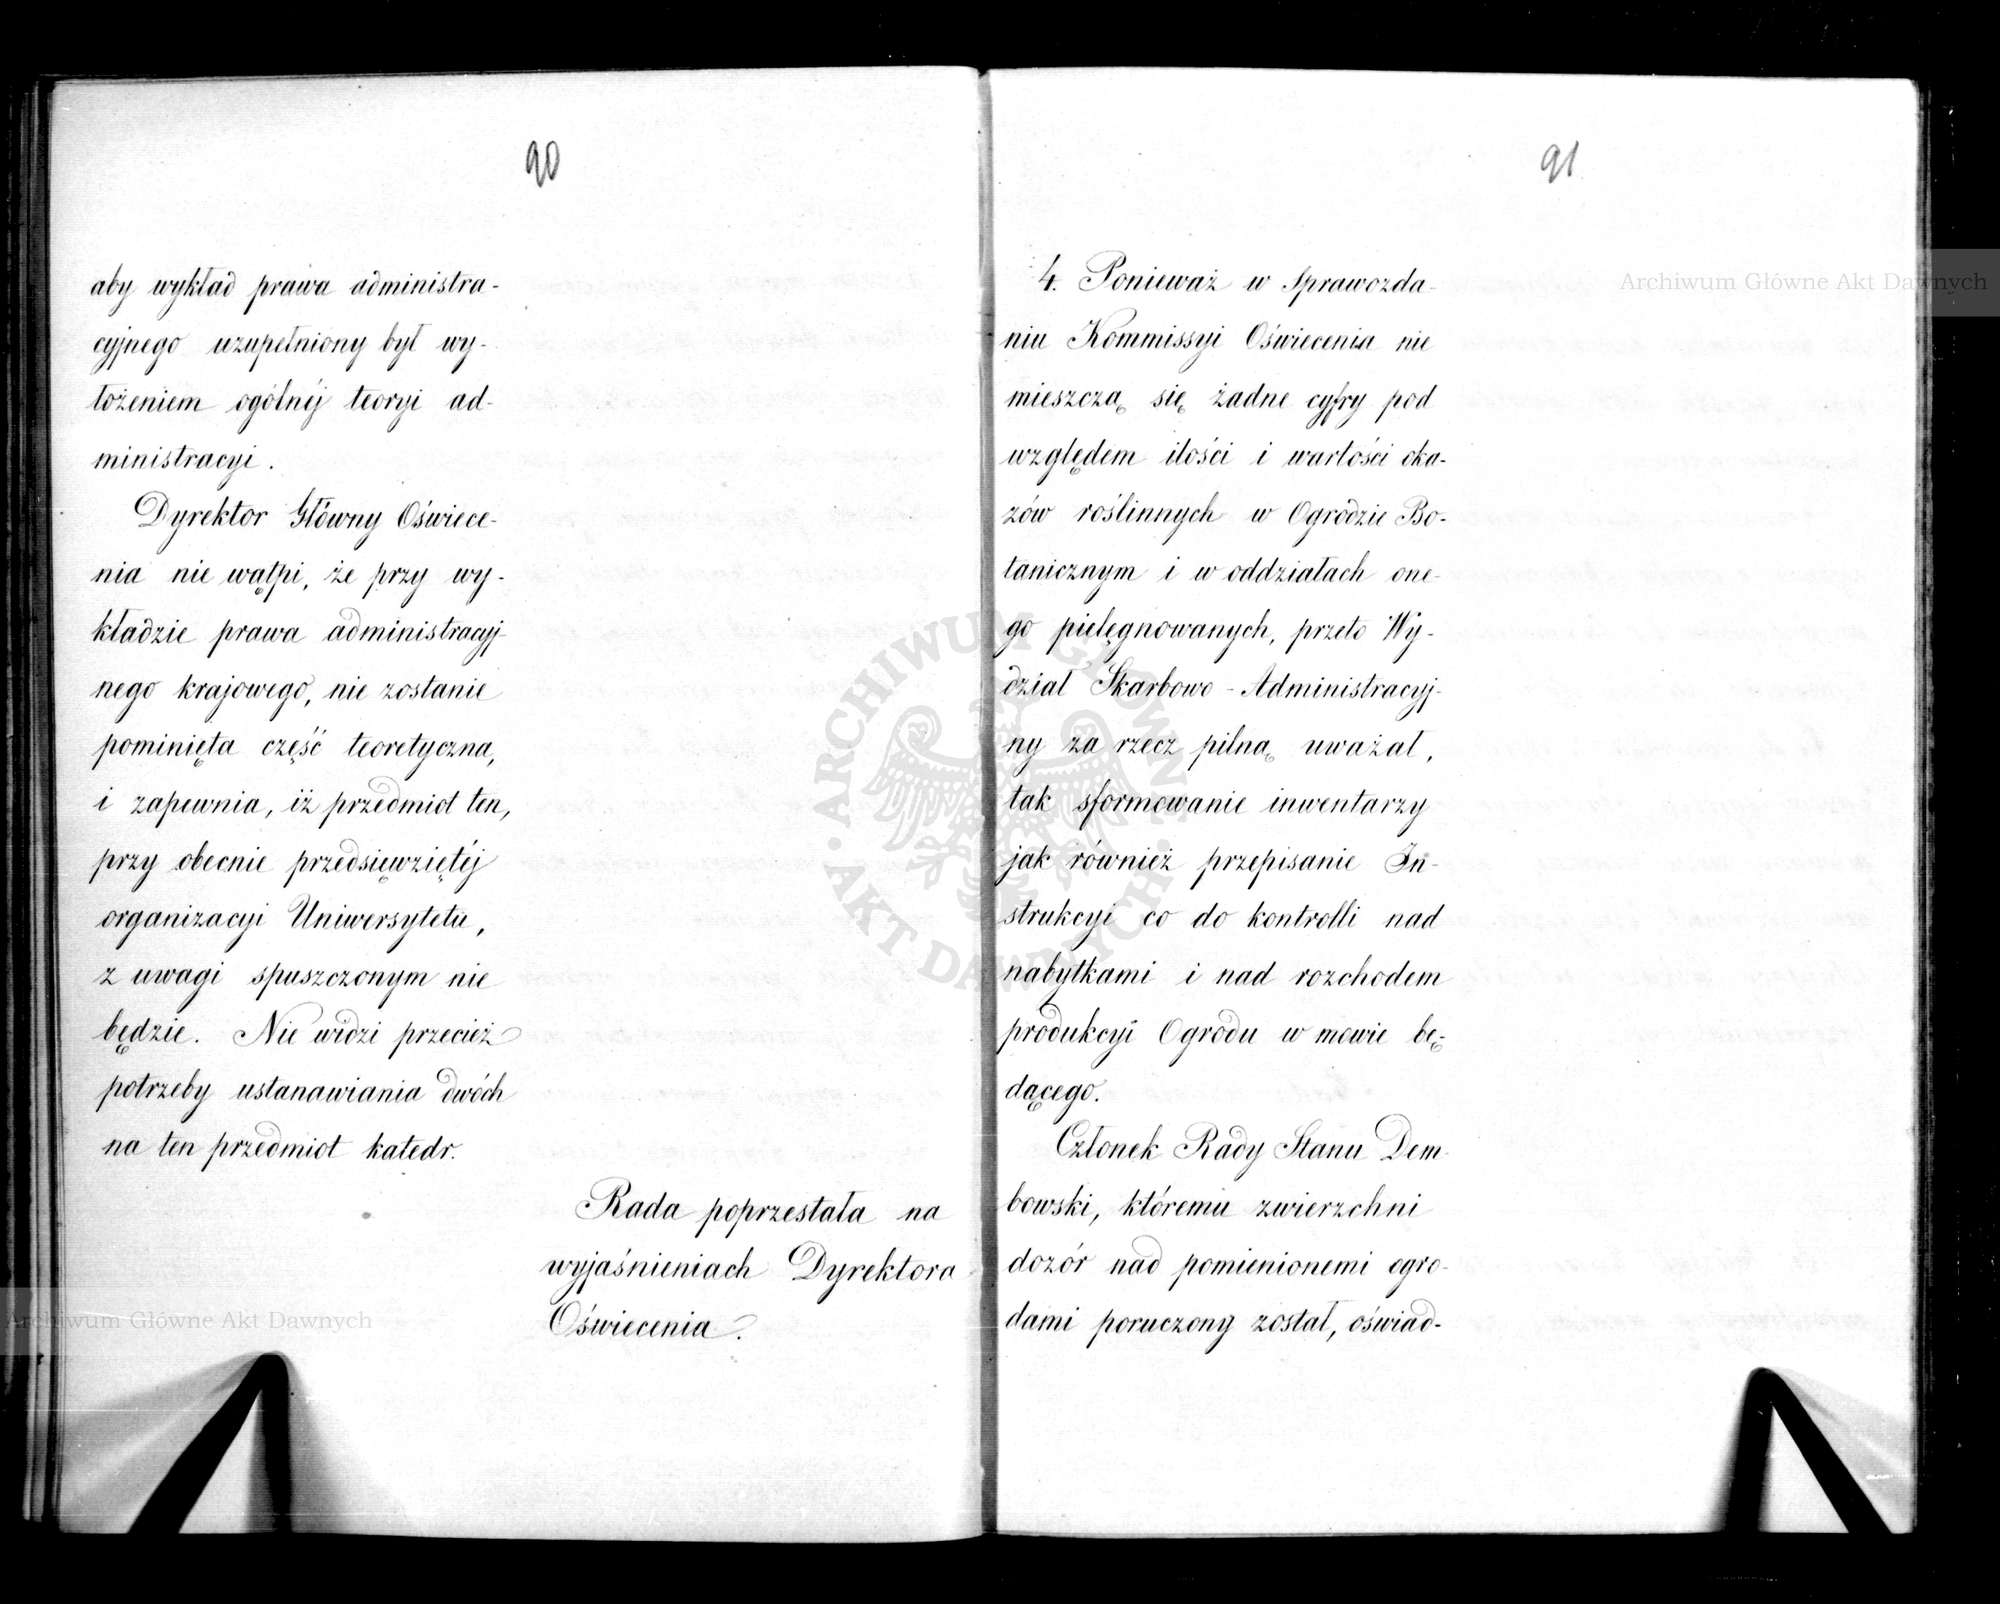 90
aby wykład prawa administra-
cyjnego uzupełniony był wy-
łożeniem ogólnéj teoryi ad-
ministracyi.
Dyrektor Główny Oświece-
nia nie wątpi, że przy wy-
kładzie prawa administracyj-
nego krajowego, nie zostanie
pominięta część teoretyczna,
i zapewnia, iż przedmiot ten,
przy obecnie przedsięwziętéj
organizacyi Uniwersytetu,
z uwagi spuszczonym nie
będzie. Nie widzi przecież
potrzeby ustanawiania dwóch
na ten przedmiot katedr.
Rada poprzestała na
wyjaśnieniach Dyrektora
Oświecenia.
91
4. Ponieważ w Sprawozda-
niu Kommissyi Oświecenia nie
mieszczą się żadne cyfry pod
względem ilości i wartości oka-
zów roślinnych w Ogrodzie Bo-
tanicznym i w oddziałach one-
go pielęgnowanych, przeto Wy-
dział Skarbowo-Administracyj-
ny za rzecz pilną uważał,
tak sformowanie inwentarzy
jak również przepisanie In-
strukcyi co do kontrolli nad
nabytkami i nad rozchodem
produkcyi Ogrodu w mowie bę-
dącego.
Członek Rady Stanu Dem-
bowski, któremu zwierzchni
dozór nad pomienionemi ogro-
dami poruczony został, oświad-
Archiwum Główne Akt Dawnych
Archiwum Główne Akt Dawnych
ARCHIWUM GŁÓWNE
AKT DAWNYCH